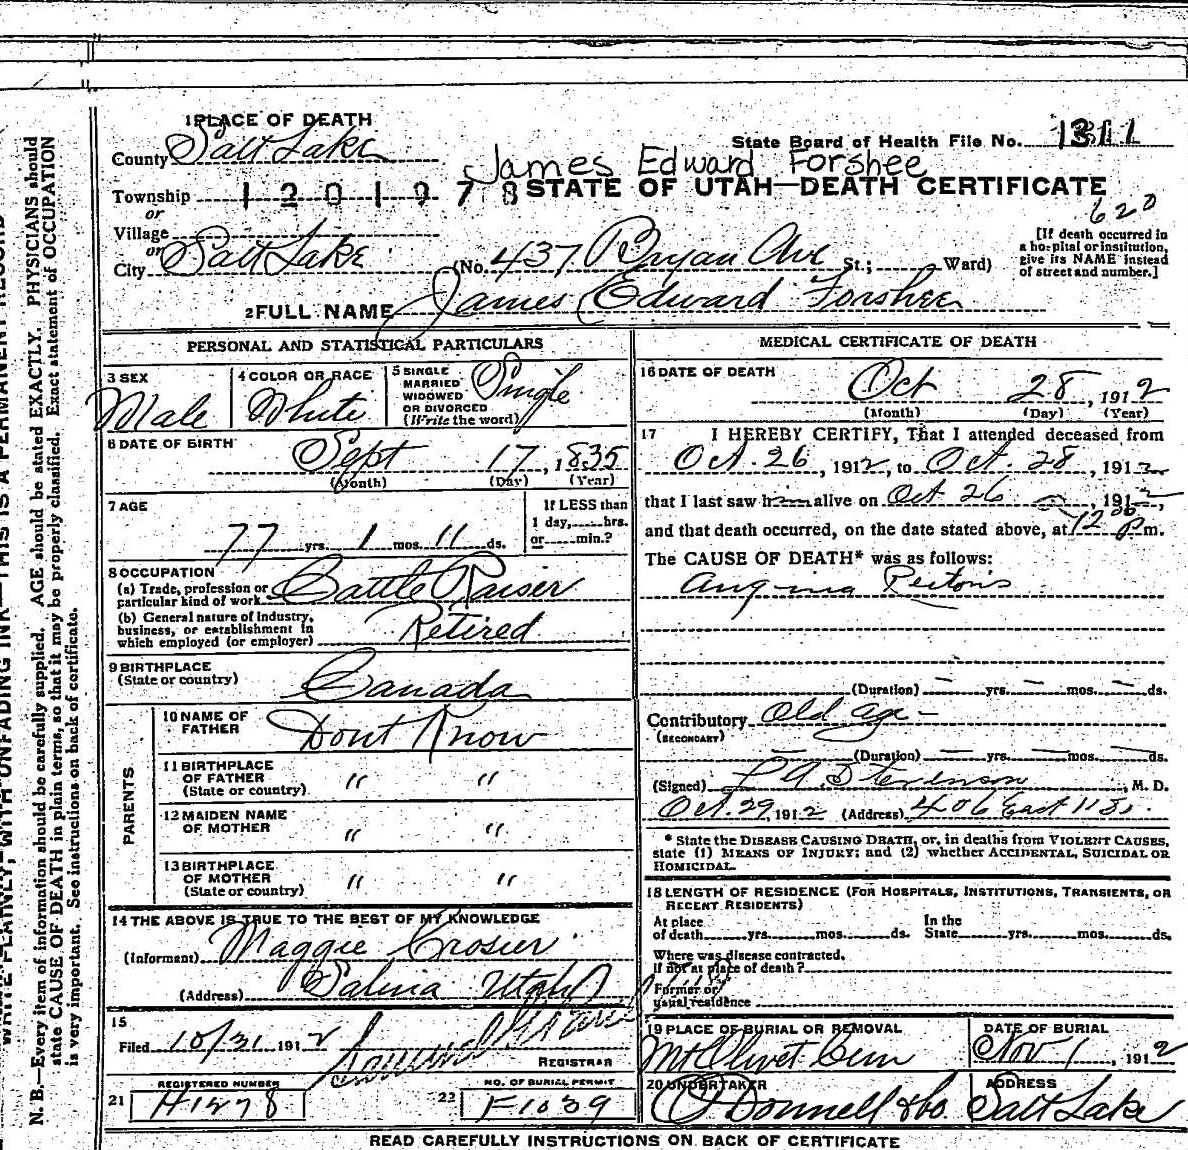 1 PLACE OF DEATH
County Salt Lake
State Board of Health File No. 1311
James Edward Forshee
Township 1201978
STATE OF UTAH—DEATH CERTIFICATE
or
Village
620
or
City Salt Lake (No. 437 Bryan Ave St.; Ward)
[If death occurred in
a hospital or institution,
give its NAME instead
of street and number.]
2 FULL NAME James Edward Forshee
PERSONAL AND STATISTICAL PARTICULARS
3 SEX
Male
4 COLOR OR RACE
White
5 SINGLE
MARRIED
WIDOWED
OR DIVORCED
(Write the word)
Single
6 DATE OF BIRTH
Sept 17, 1835
(Month) (Day) (Year)
7 AGE
77 yrs. 1 mos. 11 ds.
If LESS than
1 day, hrs.
or min.?
8 OCCUPATION
(a) Trade, profession or
particular kind of work Cattle Raiser
(b) General nature of industry,
business, or establishment in
which employed (or employer) Retired
9 BIRTHPLACE
(State or country)
Canada
PARENTS
10 NAME OF
FATHER Dont Know
11 BIRTHPLACE
OF FATHER
(State or country) " "
12 MAIDEN NAME
OF MOTHER " "
13 BIRTHPLACE
OF MOTHER
(State or country) " "
14 THE ABOVE IS TRUE TO THE BEST OF MY KNOWLEDGE
(Informant) Maggie Crosier
(Address) Salina Utah
15
Filed 10/31 1912
REGISTRAR
REGISTERED NUMBER
21 H1278
NO. OF BURIAL PERMIT
22 F1039
MEDICAL CERTIFICATE OF DEATH
16 DATE OF DEATH
Oct 28, 1912
(Month) (Day) (Year)
17 I HEREBY CERTIFY, That I attended deceased from
Oct. 26, 1912, to Oct. 28, 1912
that I last saw him alive on Oct 26, 1912,
and that death occurred, on the date stated above, at 12 00 P m.
The CAUSE OF DEATH* was as follows:
Angina Pectoris
(Duration) — yrs. — mos. — ds.
Contributory Old age —
(SECONDARY)
(Duration) — yrs. — mos. — ds.
(Signed) Stevenson, M. D.
Oct. 29 1912 (Address) 406 East 11 So.
* State the DISEASE CAUSING DEATH, or, in deaths from VIOLENT CAUSES,
state (1) MEANS OF INJURY; and (2) whether ACCIDENTAL, SUICIDAL OR
HOMICIDAL.
18 LENGTH OF RESIDENCE (FOR HOSPITALS, INSTITUTIONS, TRANSIENTS, OR
RECENT RESIDENTS)
At place
of death yrs. mos. ds.
In the
State yrs. mos. ds.
Where was disease contracted,
if not at place of death?
Former or
usual residence
19 PLACE OF BURIAL OR REMOVAL
Mt Olivet Cem
DATE OF BURIAL
Nov 1, 1912
20 UNDERTAKER
O'Donnell & Co.
ADDRESS
Salt Lake
READ CAREFULLY INSTRUCTIONS ON BACK OF CERTIFICATE
WRITE PLAINLY, WITH UNFADING INK—THIS IS A PERMANENT RECORD
N. B.—Every item of information should be carefully supplied. AGE should be stated EXACTLY. PHYSICIANS should
state CAUSE OF DEATH in plain terms, so that it may be properly classified. Exact statement of OCCUPATION
is very important. See instructions on back of certificate.